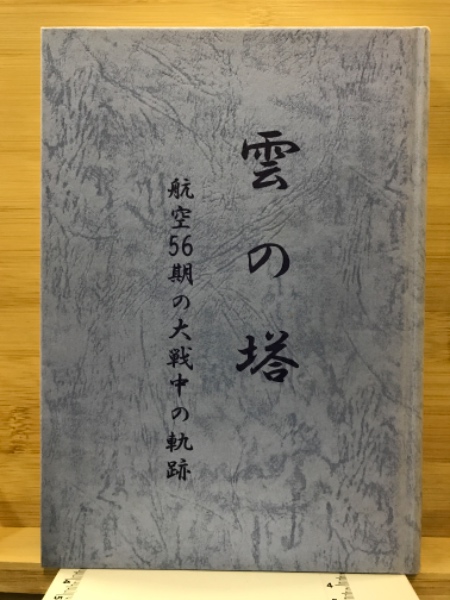 雲の塔
航空56期の大戦中の軌跡